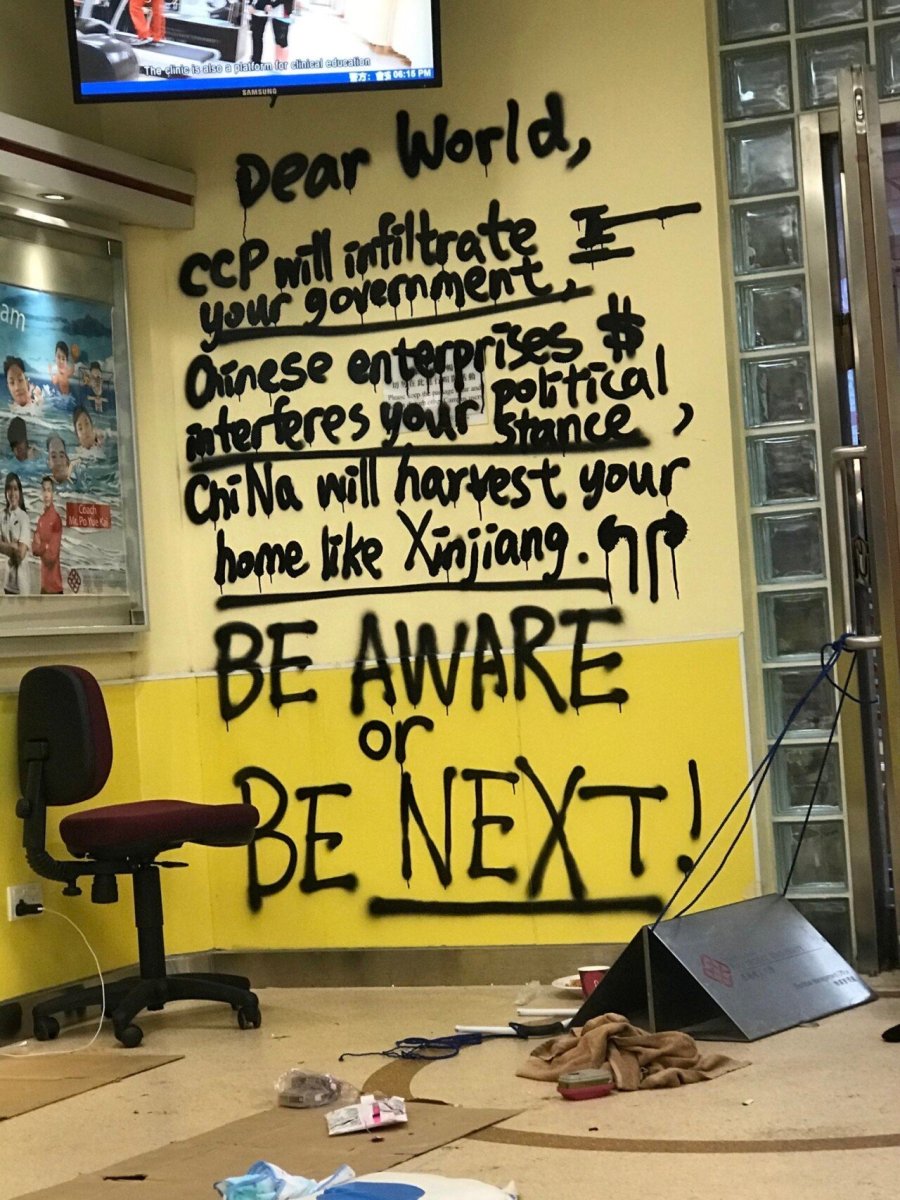 The clinic is also a platform for clinical education
警方： 06:15 PM
SAMSUNG
Dear World,
CCP will infiltrate
your government,
Chinese enterprises $
interferes your political
stance,
ChiNa will harvest your
home like Xinjiang.
BE AWARE
or
BE NEXT!
am
Coach
Mr. Po Yue Kai